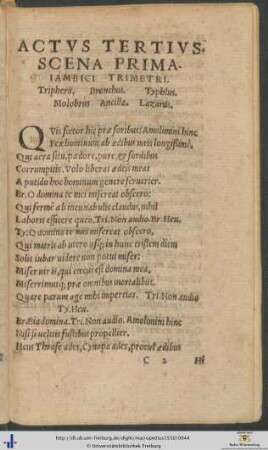 ACTVS TERTIVS.
SCENA PRIMA.
IAMBICI TRIMETRI.
Triphera, Bronchus, Typhlus,
Molobrus Ancilla, Lazarus.
QVis fœtor hic præ foribus? Amolimini hinc
Fex hominum ab ædibus meis longissimè,
Qui aera situ, pædore, pure, & sordibus
Corrumpitis. Volo liberas ædes meas
A putido hoc hominum genere seruarier.
Br. O domina te mei misereat obsecro;
Qui fermè ab incunabulis claudus, nihil
Laboris efficere queo. Tri. Non audio. Br. Heu,
Ty. O domina te mei misereat obsecro,
Qui matris ab utero usq; in hunc tristem diem
Solis iubar uidere non potui miser:
Miser uir is, qui cæcus est domina mea,
Miserrimusq; præ omnibus mortalibus.
Quare parum age mihi impertias. Tri. Non audio
Ty. Heu.
Br. Eia domina. Tri. Non audio. Amolimini hinc
Nisi si uelitis fustibus propellier.
Heus Thraso ades, Cynopa ades, procul ædibus
C 2 Hi
http://dl.ub.uni-freiburg.de/diglit/macropedius1550/0044
© Universitätsbibliothek Freiburg
Baden-Württemberg